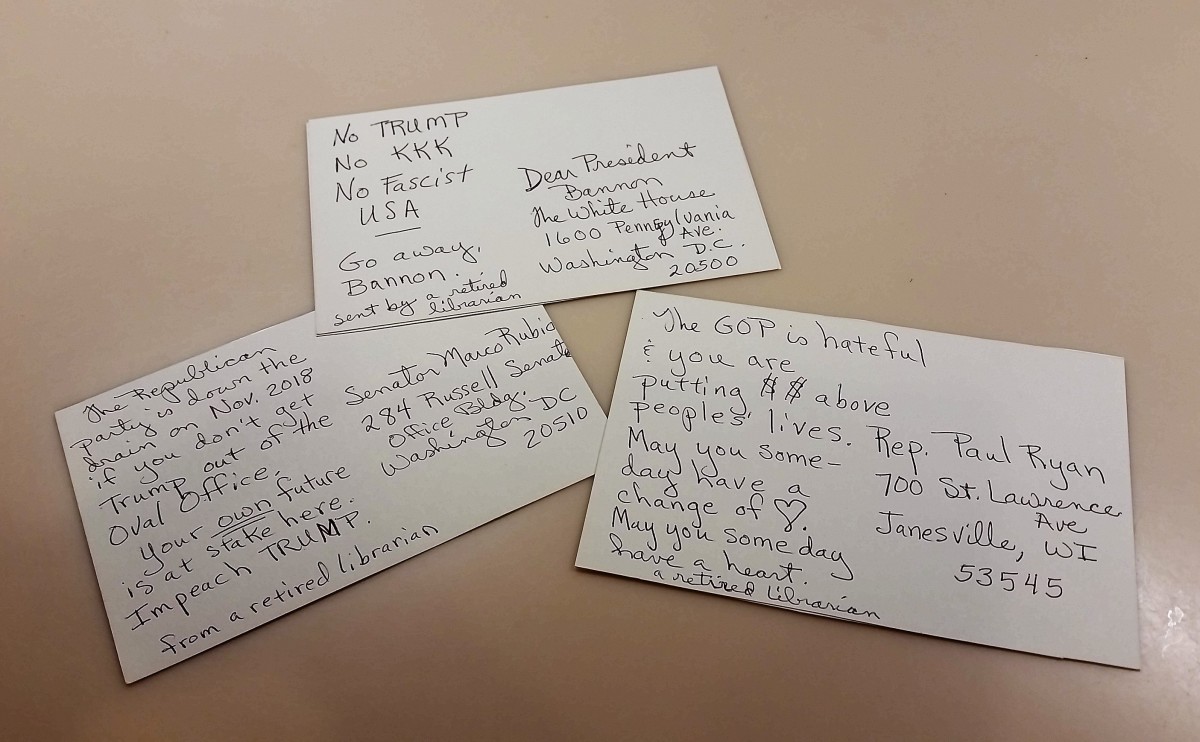 No TRUMP
No KKK
No Fascist
USA
Go away,
Bannon.
sent by a retired
librarian
Dear President
Bannon
The White House
1600 Pennsylvania
Ave.
Washington D.C.
20500
The Republican
party is down the
drain on Nov. 2018
if you don't get
Trump out of the
Oval Office.
Your own future
is at stake here.
Impeach TRUMP.
from a retired librarian
Senator Marco Rubio
284 Russell Senate
Office Bldg.
Washington DC
20510
The GOP is hateful
& you are
putting $$ above
peoples' lives.
May you some-
day have a
change of ♡.
May you some day
have a heart.
a retired librarian
Rep. Paul Ryan
700 St. Lawrence
Ave
Janesville, WI
53545